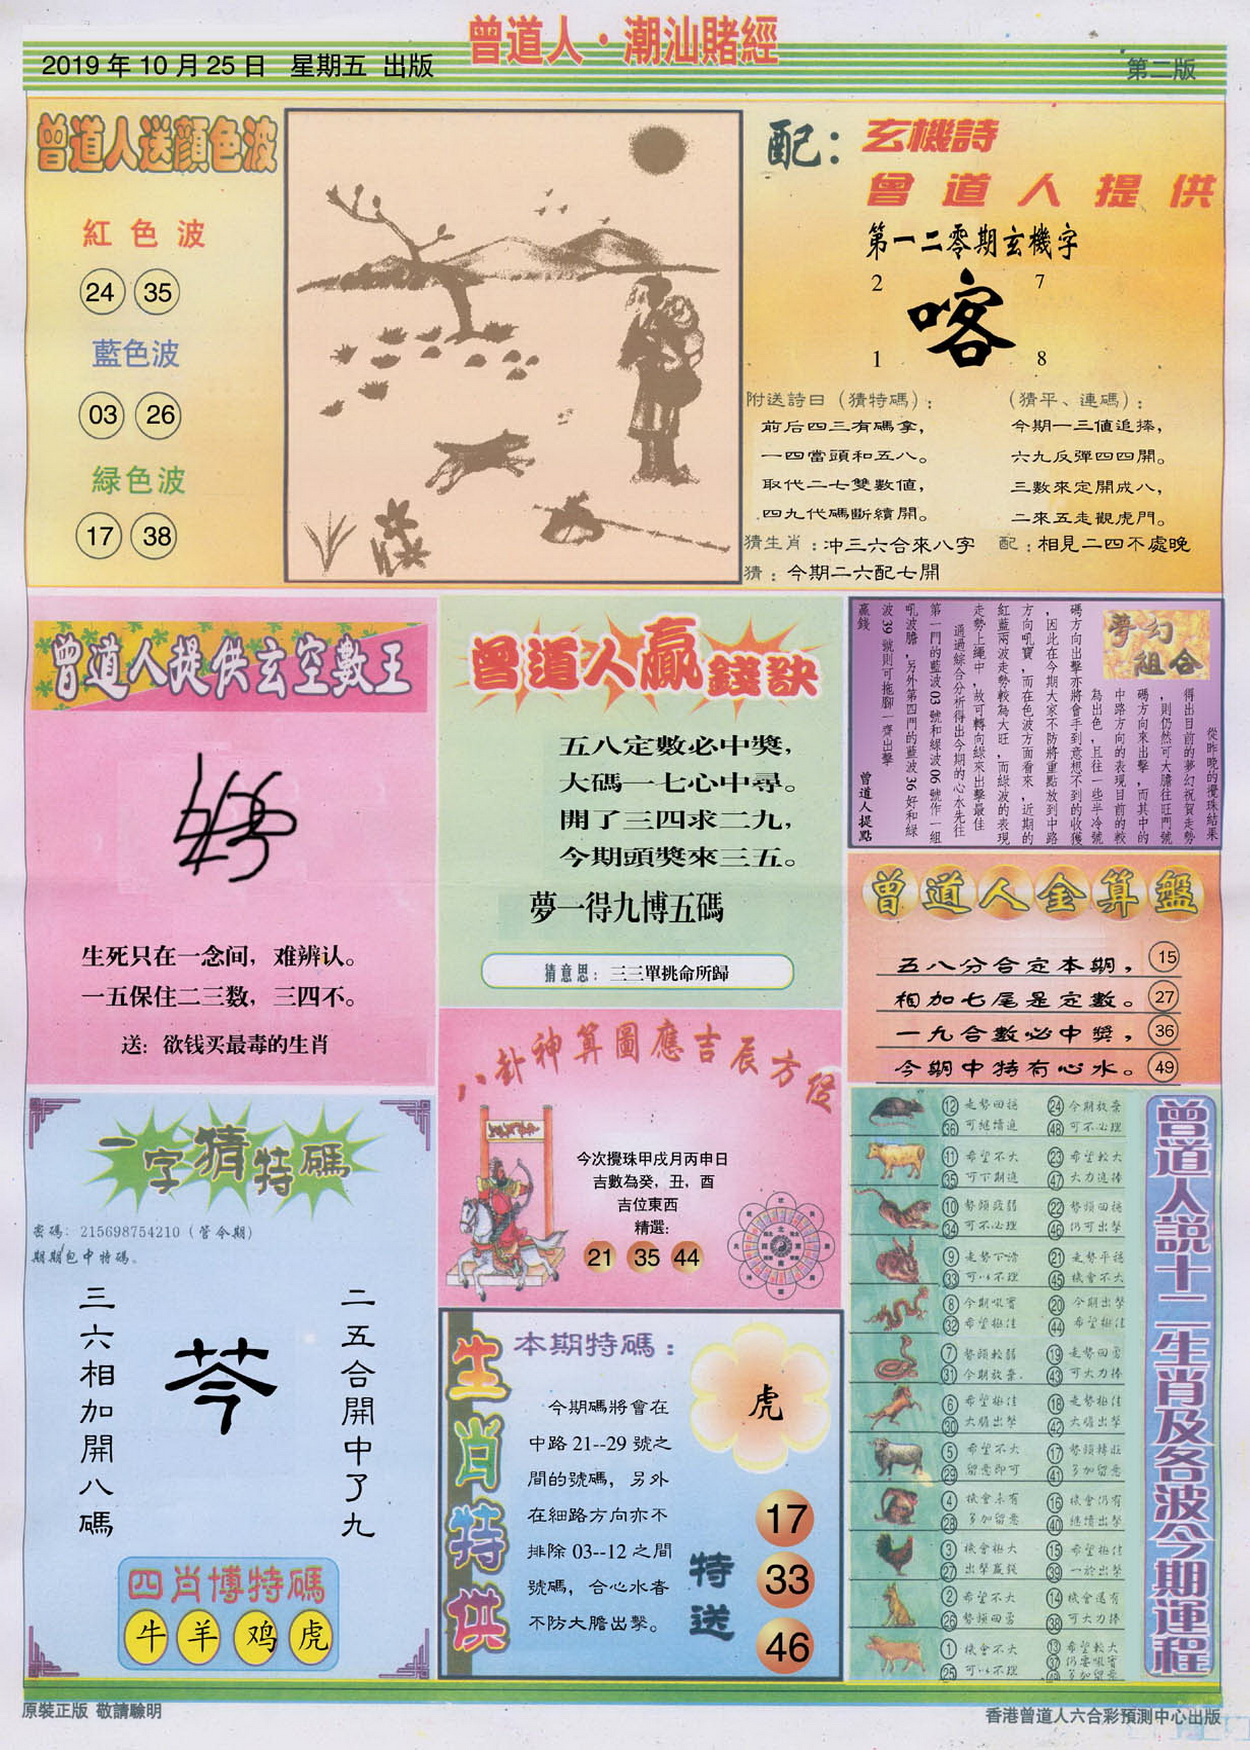 曾道人·潮汕賭經
2019 年 10 月 25 日 星期五 出版
第二版
曾道人送顔色波
紅色波
24 35
藍色波
03 26
緑色波
17 38
配：
玄機詩
曾道人提供
第一二零期玄機字
2 7
喀
1 8
附送詩曰（猜特碼）：
前后四三有碼拿，
一四當頭和五八。
取代二七雙數值，
四九代碼斷續開。
（猜平、連碼）：
今期一三值追捧，
六九反彈四四開。
三數來定開成八，
二來五走觀虎門。
猜生肖：冲三六合來八字 配：相見二四不處晚
猜：今期二六配七開
曾道人提供玄空數王
生死只在一念间，难辨认。
一五保住二三数，三四不。
送：欲钱买最毒的生肖
曾道人贏錢訣
五八定數必中獎，
大碼一七心中尋。
開了三四求二九，
今期頭獎來三五。
夢一得九博五碼
猜意思：三三單挑命所歸
夢幻
組合
從昨晚的攪珠結果
得出目前的夢幻祝賀走勢
，則仍然可大膽往旺門號
碼方向來出擊，而其中的
中路方向的表現目前的較
為出色，且往一些半冷號
碼方向出擊亦將會手到意想不到的收獲
，因此在今期大家不防將重點放到中路
方向吼寶，而在色波方面看來，近期的
紅藍兩波走勢較為大旺，而綠波的表現
走勢上繩中，故可轉向綠來出擊最佳
通過綜合分析得出今期的心水先往
第一門的藍波 03 號和綠波 06 號作一組
吼波膽，另外第四門的藍波 36 好和綠
波 39 號則可拖腳一齊出擊
贏錢
曾道人提點
曾道人金算盤
五八分合定本期，15
相加七尾是定數。27
一九合數必中獎，36
今期中特有心水。49
八卦神算圖應吉辰方位
今次攪珠甲戌月丙申日
吉數為癸，丑，酉
吉位東西
精選:
21 35 44
一字猜特碼
密碼：215698754210（管今期）
期期包中特碼。
三六相加開八碼
芩
二五合開中了九
四肖博特碼
牛 羊 鸡 虎
生肖特供
本期特碼：
虎
今期碼將會在
中路 21--29 號之
間的號碼，另外
在細路方向亦不
排除 03--12 之間
號碼，合心水者
不防大膽出擊。
特送
17
33
46
曾道人說十二生肖及各波今期運程
12 走勢回穩 24 今期放棄
36 可繼續追 48 可不必理
11 希望不大 23 希望較大
35 可下期追 47 大力追捧
10 勢頭疲弱 22 勢頭回穩
34 可不必理 46 仍可出擊
9 走勢下滑 21 走勢平穩
33 可以不理 45 機會不大
8 今期吸寶 20 今期出擊
32 希望極佳 44 希望極佳
7 勢頭較弱 19 走勢回勇
31 今期放棄. 43 可大力捧
6 希望極佳 18 走勢極佳
30 大膽出擊 42 大膽出擊
5 希望不大 17 勢頭轉旺
29 留意即可 41 多加留意
4 機會未有 16 機會仍有
28 多加留意 40 繼續出擊
3 機會極大 15 希望極佳
27 出擊贏錢 39 一於出擊
2 希望不大 14 機會還有
26 勢頭回勇 38 可大力捧
1 機會不大 13 希望較大
25 可以不理 37 仍要吸寶
49 多加留意
原裝正版 敬請驗明
香港曾道人六合彩預測中心出版